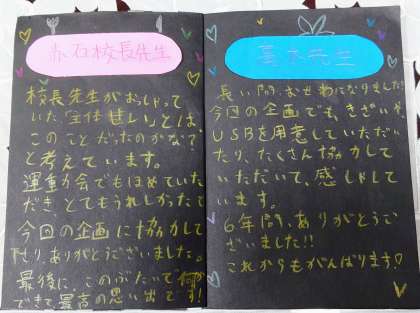 赤石校長先生
校長先生がおっしゃって
いた「全体せい」とは
このことだったのかな?
と考えています。
運動会でもほめていた
だき、とてもうれしかったで
今回の企画に協力して
下さり、ありがとうございました。
最後に、このぶたいで何か
できて、最高の思い出です!
先生
長い間、おせわになりました
今回の企画でも、きざいや、
USBを用意していただい
たり、たくさん協力して
いただいて、感しゃして
います。
6年間、ありがとうご
ざいました!!
これからもがんばります♡